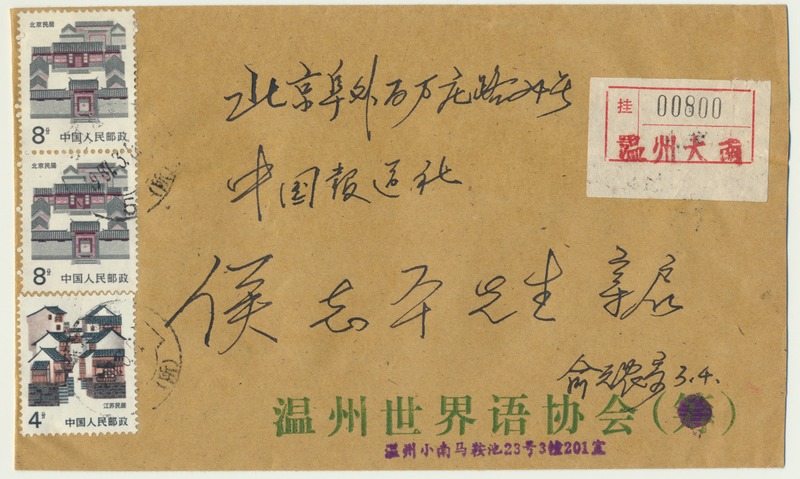 北京民居
8分
中国人民邮政
北京民居
8分
中国人民邮政
江苏民居
4分
中国人民邮政
北京阜外百万庄路24号
挂
00800
温州大南
中国报道社
侯志平先生 亲启
3.4.
温州世界语协会(筹)
温州小南马鞍池23号3幢201室
(所)
(所)